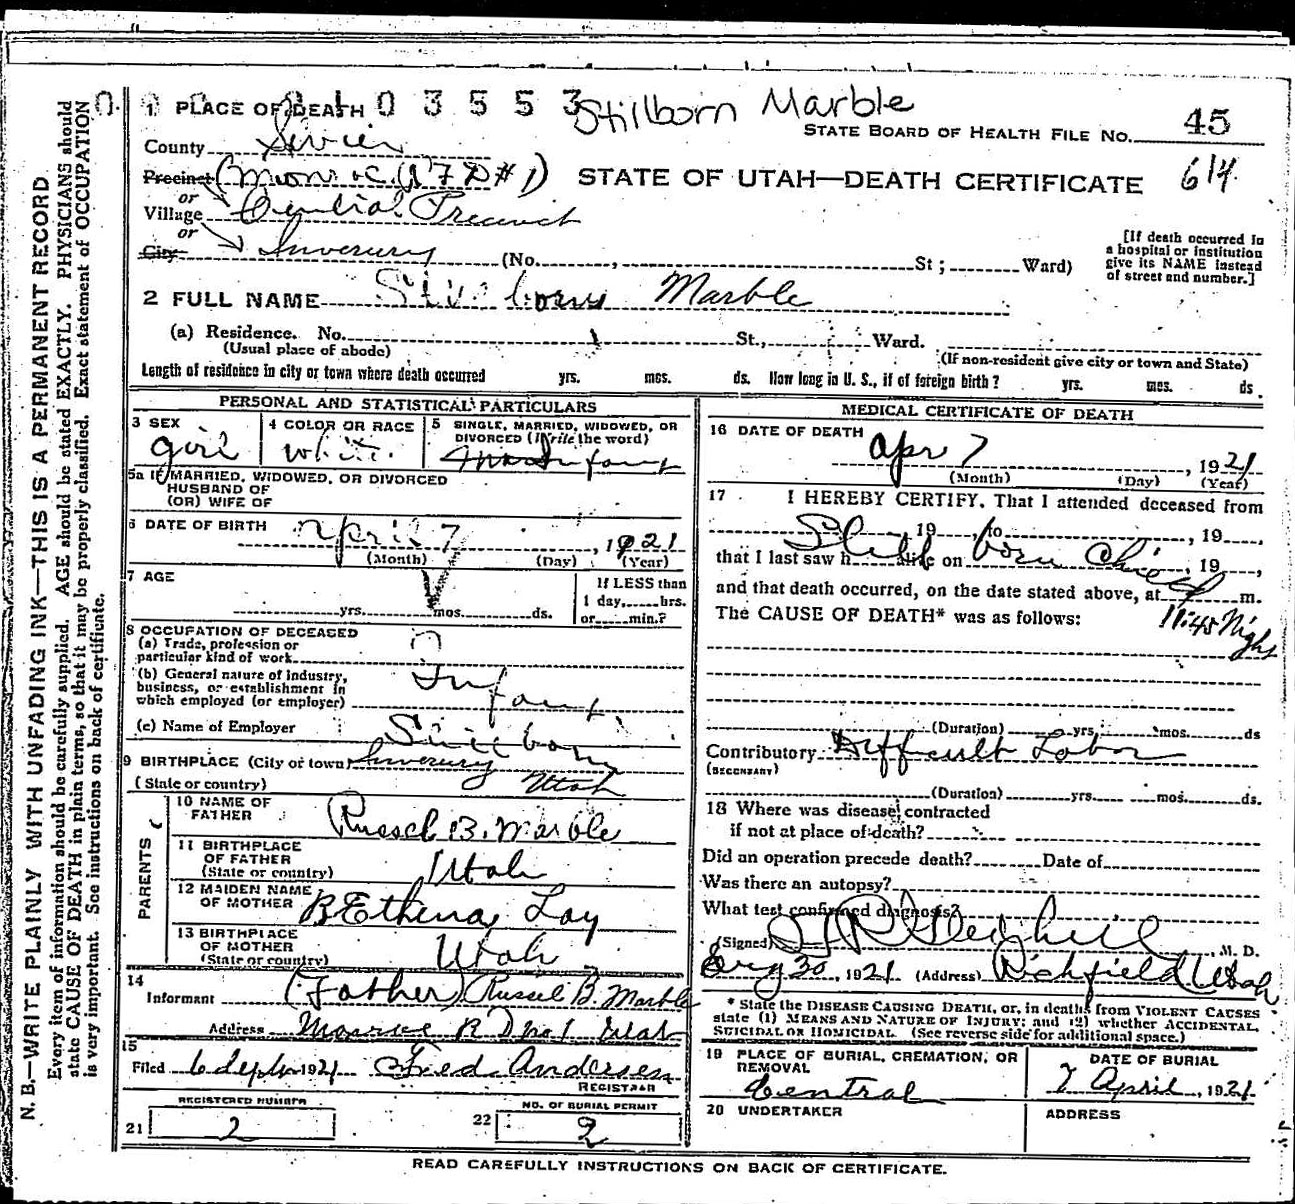 N. B.—WRITE PLAINLY WITH UNFADING INK—THIS IS A PERMANENT RECORD
Every item of information should be carefully supplied. AGE should be stated EXACTLY. PHYSICIANS should
state CAUSE OF DEATH in plain terms, so that it may be properly classified. Exact statement of OCCUPATION
is very important. See instructions on back of certificate.
03553
Stillborn Marble
1 PLACE OF DEATH
STATE BOARD OF HEALTH FILE No. 45
County Sevier
614
Precinct (Monroe
STATE OF UTAH—DEATH CERTIFICATE
or
Village Central Precinct
or
City Inverury (No. , St; Ward)
[If death occurred in
a hospital or institution
give its NAME instead
of street and number.]
2 FULL NAME Stillborn Marble
(a) Residence. No. St., Ward.
(Usual place of abode)
(If non-resident give city or town and State)
Length of residence in city or town where death occurred yrs. mos. ds. How long in U. S., if of foreign birth? yrs. mos. ds
PERSONAL AND STATISTICAL PARTICULARS
3 SEX
girl
4 COLOR OR RACE
white
5 SINGLE, MARRIED, WIDOWED, OR
DIVORCED (Write the word)
5a If MARRIED, WIDOWED, OR DIVORCED
HUSBAND OF
(OR) WIFE OF
6 DATE OF BIRTH April 7, 1921
(Month) (Day) (Year)
7 AGE
yrs. mos. ds.
If LESS than
1 day, hrs.
or min.?
8 OCCUPATION OF DECEASED
(a) Trade, profession or
particular kind of work
(b) General nature of industry,
business, or establishment in
which employed (or employer)
Infant
(c) Name of Employer
Stillborn
9 BIRTHPLACE (City or town) Inverury
(State or country) Utah
PARENTS
10 NAME OF
FATHER
Russel B. Marble
11 BIRTHPLACE
OF FATHER
(State or country)
Utah
12 MAIDEN NAME
OF MOTHER
B Ethena Lay
13 BIRTHPLACE
OF MOTHER
(State or country)
Utah
14
Informant (Father) Russel B. Marble
Address Monroe R D no 1 Utah
15
Filed 6 Sept 1921 Fred Andersen
REGISTRAR
REGISTERED NUMBER
21 2
NO. OF BURIAL PERMIT
22 2
MEDICAL CERTIFICATE OF DEATH
16 DATE OF DEATH
Apr 7, 1921
(Month) (Day) (Year)
17 I HEREBY CERTIFY, That I attended deceased from
, 19 , to , 19 ,
that I last saw h alive on , 19 ,
Still born Child
and that death occurred, on the date stated above, at m.
The CAUSE OF DEATH* was as follows:
11:45 Night
(Duration) yrs. mos. ds
Contributory Difficult Labor
(SECONDARY)
(Duration) yrs. mos. ds.
18 Where was disease contracted
if not at place of death?
Did an operation precede death? Date of
Was there an autopsy?
What test confirmed diagnosis?
(Signed) , M. D.
Aug 30, 1921 (Address) Richfield Utah
* State the DISEASE CAUSING DEATH, or, in deaths from VIOLENT CAUSES
state (1) MEANS AND NATURE OF INJURY; and (2) whether ACCIDENTAL,
SUICIDAL OR HOMICIDAL. (See reverse side for additional space.)
19 PLACE OF BURIAL, CREMATION, OR
REMOVAL
Central
DATE OF BURIAL
7 April, 1921
20 UNDERTAKER
ADDRESS
READ CAREFULLY INSTRUCTIONS ON BACK OF CERTIFICATE.